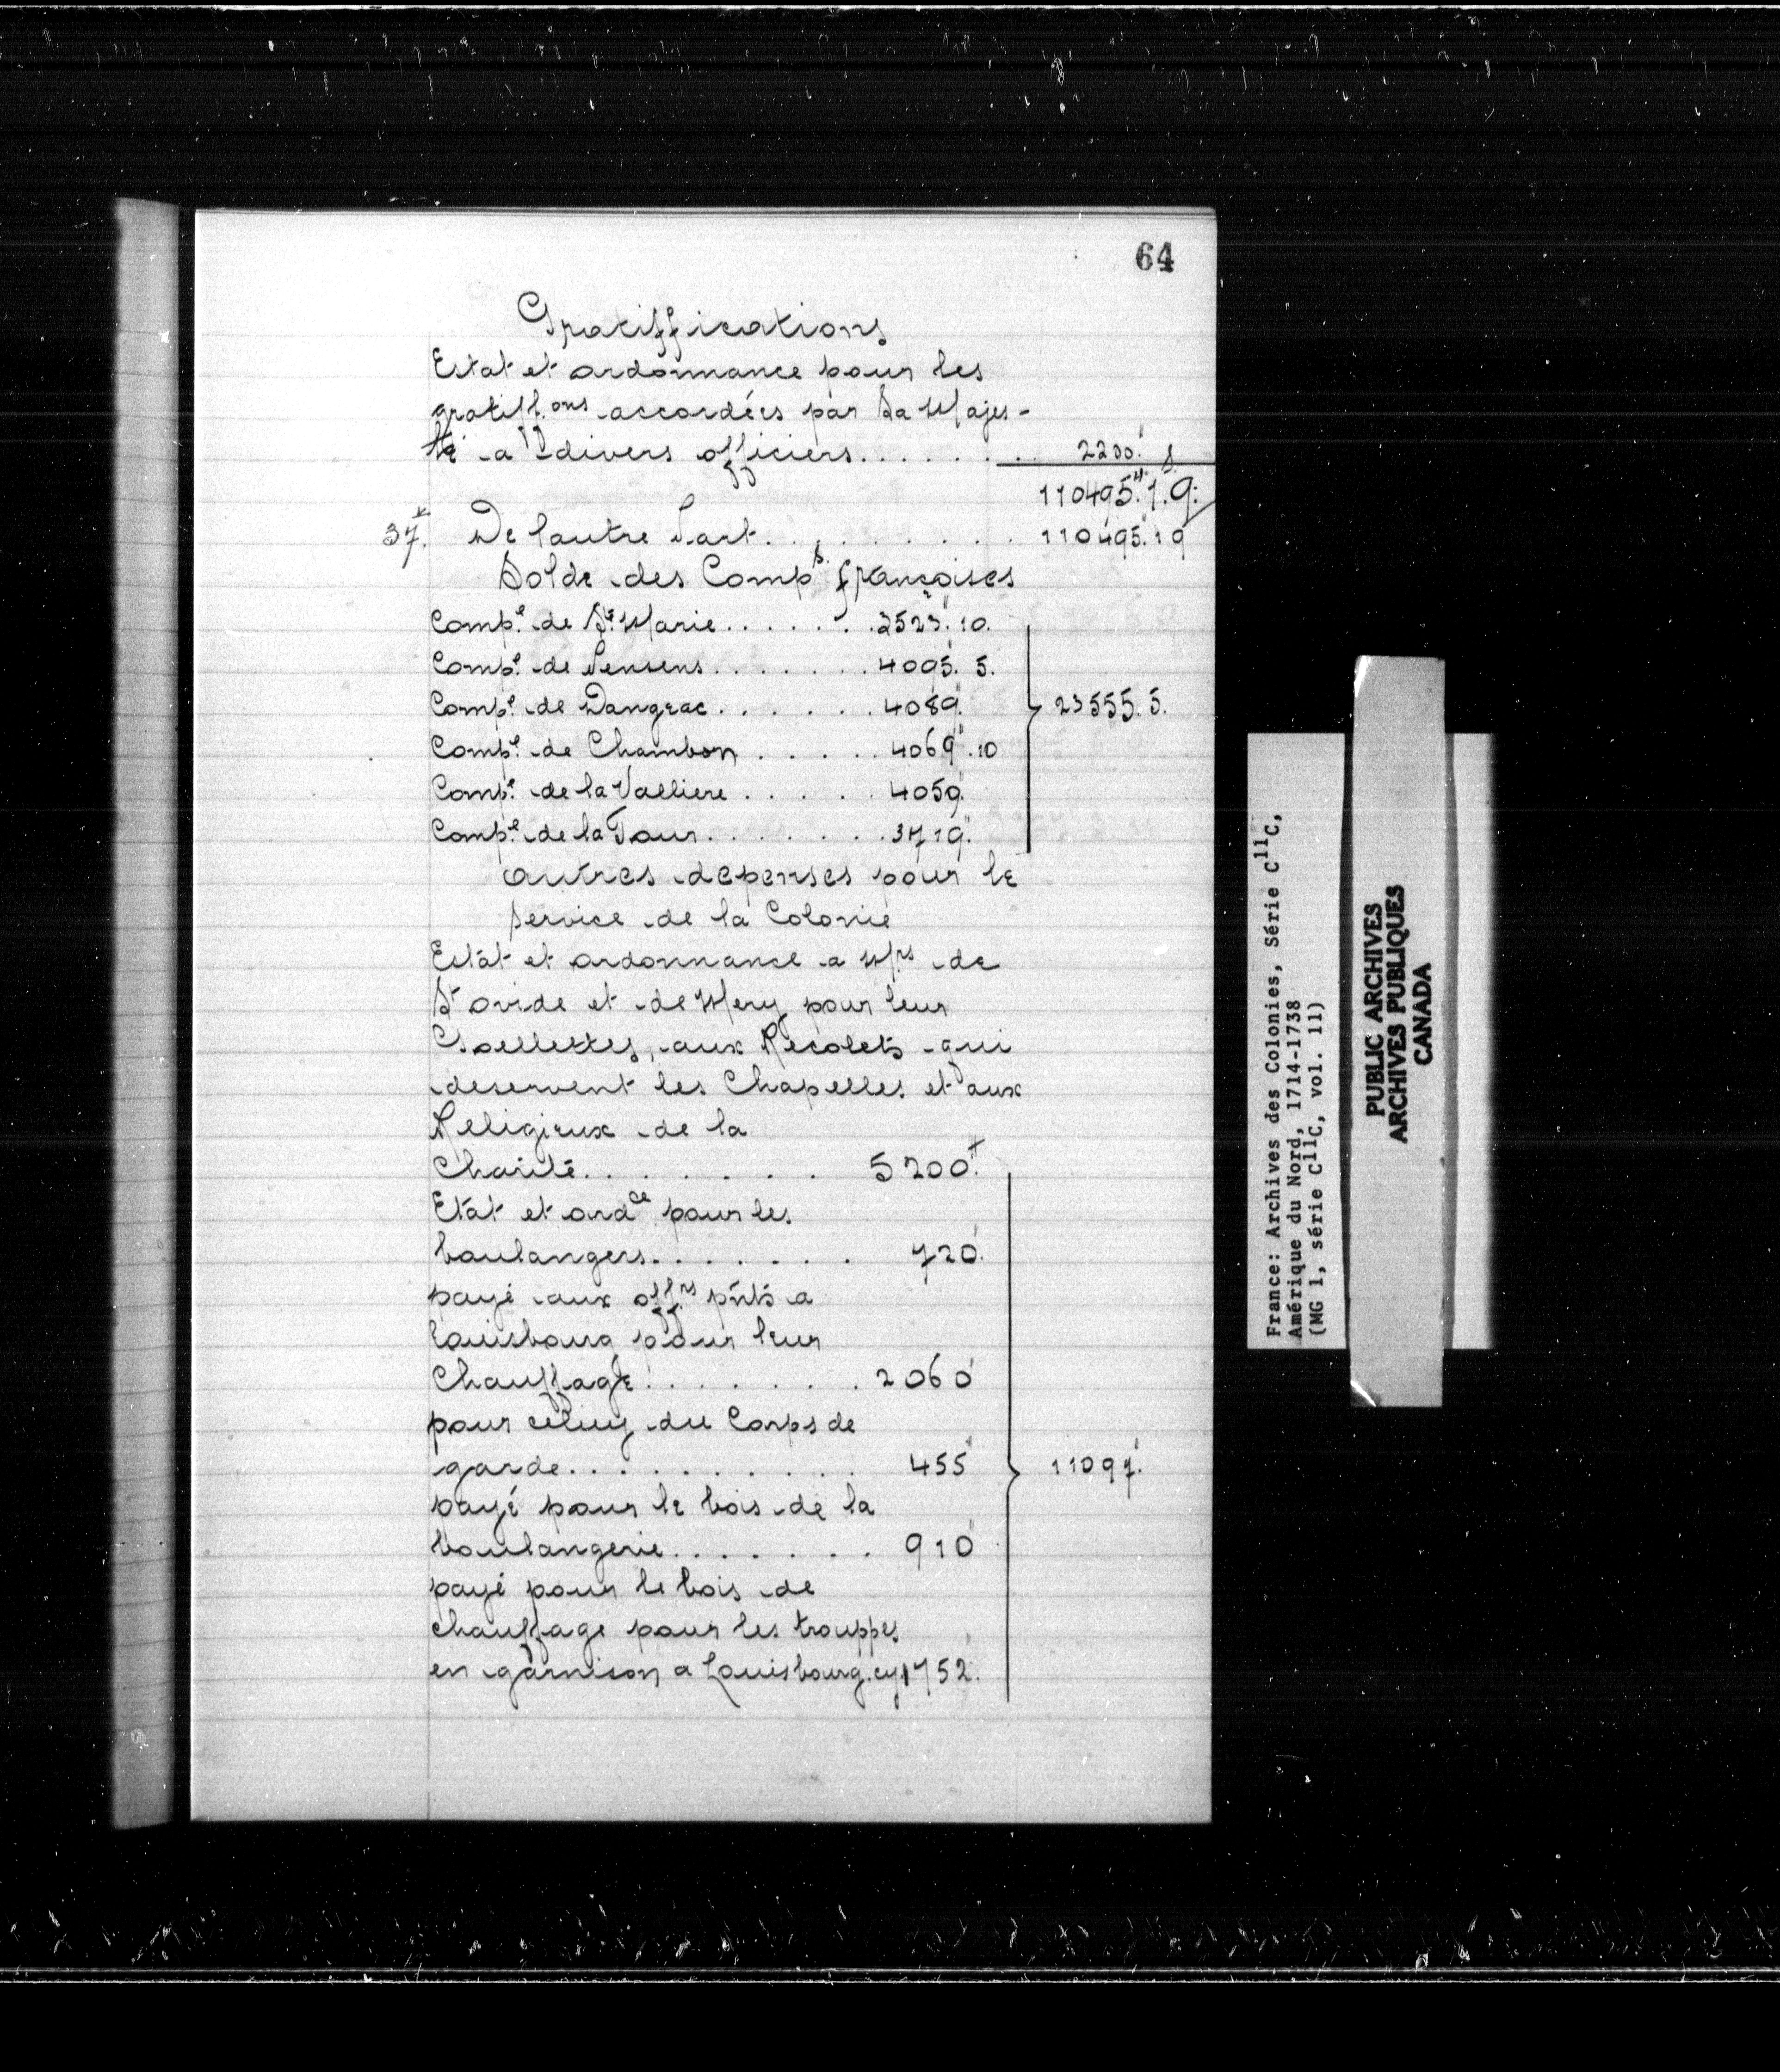 64
Gratiffications
Estat et ordonnance pour les
gratiff.ons accordées par Sa Majes-
té a divers officiers....... 2200.# s
110495.# 1. 9.
37. De lautre Part......... 110495. 1 9
Solde des Comps. françoises
Compe. de Ste. Marie...... 3523. 10.
Compe. de Pensens...... 4095. 5.
Compe. de Dangeac...... 4089. 23555. 5.
Compe. de Chambon..... 4069. 10
Compe. de la Valliere..... 4059.
Compe. de la Tour....... 3719.
autres depenses pour le
service de la Colonie
Estat et ordonnance a Mrs de
St ovide et de Mezy pour leur
Goellettes, aux Recolets qui
deservent les Chapelles et aux
Religieux de la
Charité....... 5200.#
Etat et ordce pour les
boulangers....... 720.
payé aux offrs. pnts a
Louisbourg pour leur
Chauffage....... 2060
pour celuy du Corps de
garde.......... 455 11097.
payé pour le bois de la
boulangerie....... 910
payé pour le bois de
chauffage pour les trouppes
en garnison a Louisbourg. cy 1752.
France: Archives des Colonies, Série C11C,
Amérique du Nord, 1714-1738
(MG 1, série C11C, vol. 11)
PUBLIC ARCHIVES
ARCHIVES PUBLIQUES
CANADA